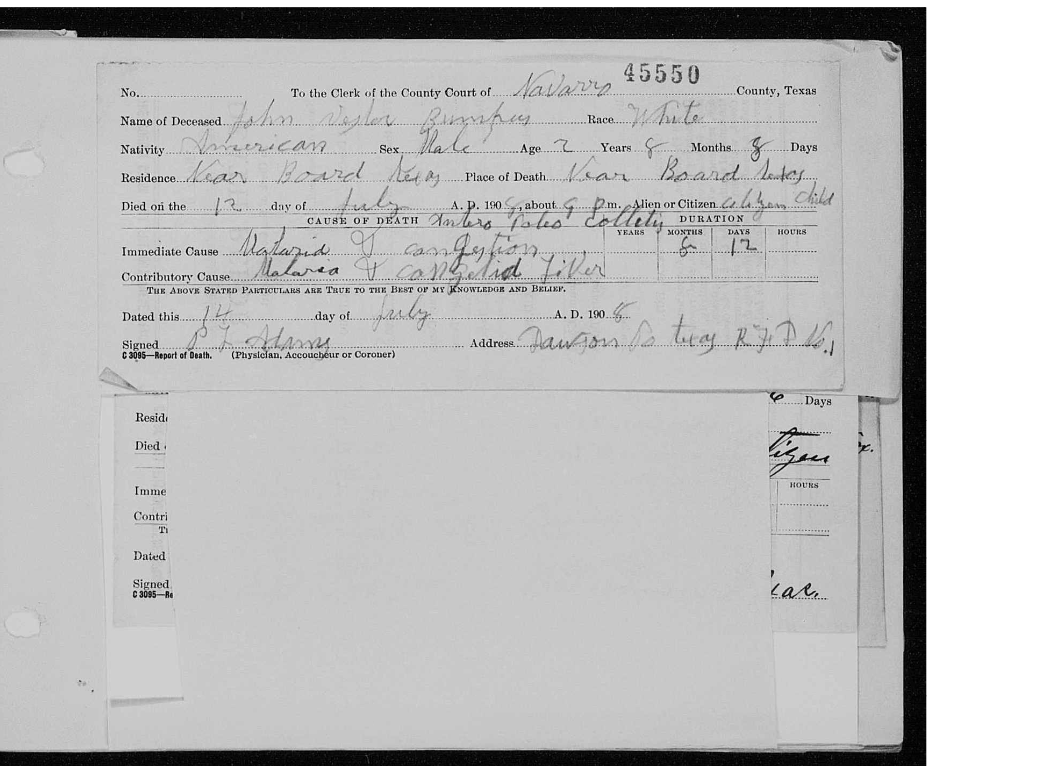 45550
No. To the Clerk of the County Court of Navarro County, Texas
Name of Deceased John Vester Bumpus Race White
Nativity American Sex Male Age 2 Years 8 Months 8 Days
Residence Near Board Texas Place of Death Near Board texas
Died on the 12 day of July A. D. 1908, about 9 P m. Alien or Citizen Citizen Child
CAUSE OF DEATH Intero Coletis DURATION
YEARS MONTHS DAYS HOURS
Immediate Cause Malaria & congestion 8 12
Contributory Cause Malaria & Fiver
THE ABOVE STATED PARTICULARS ARE TRUE TO THE BEST OF MY KNOWLEDGE AND BELIEF.
Dated this 14 day of July A. D. 1908
Signed P L Adams Address Dawson Co texas R F D No. 1
C 3095—Report of Death. (Physician, Accoucheur or Coroner)
6 Days
Resid
Died
itizen
ex.
HOURS
Imme
Contri
TH
Dated
Signed
C 3095—Re
xas.